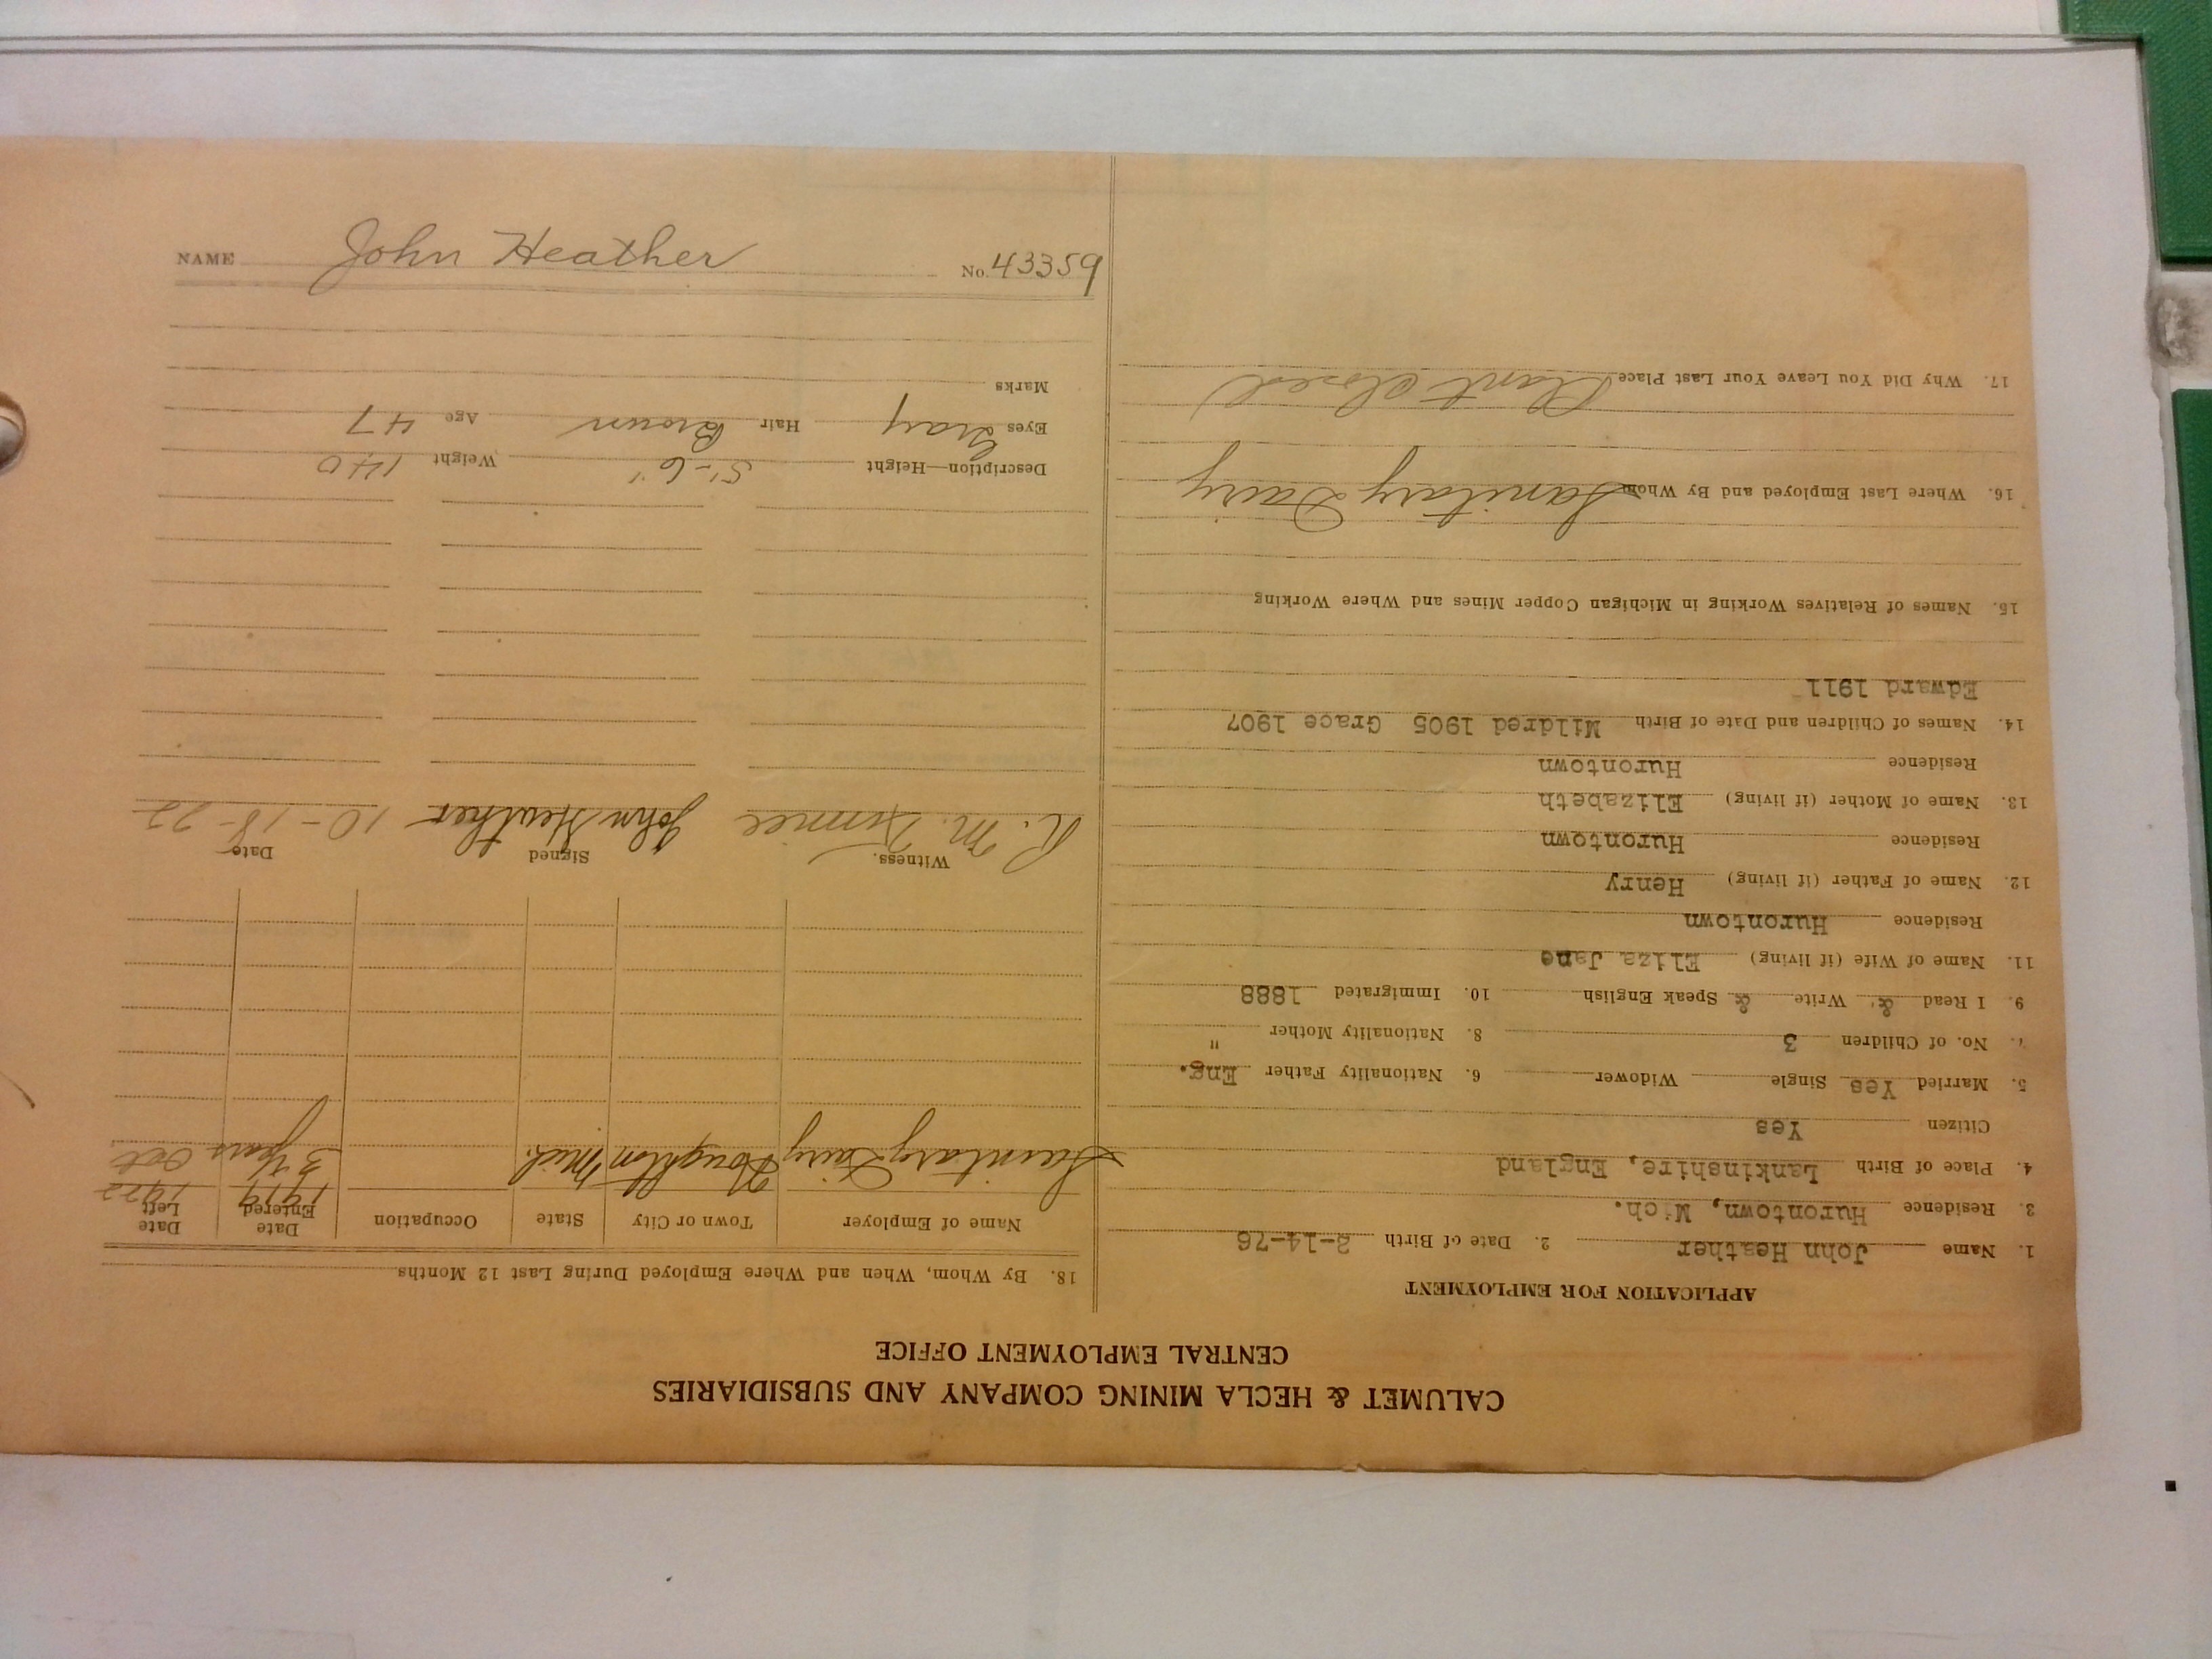 CALUMET & HECLA MINING COMPANY AND SUBSIDIARIES
CENTRAL EMPLOYMENT OFFICE
APPLICATION FOR EMPLOYMENT
1. Name John Heather 2. Date of Birth 2-14-76
3. Residence Hurontown, Mich.
4. Place of Birth Lankinshire, England
Citizen Yes
5. Married Yes Single Widower 6. Nationality Father Eng.
7. No. of Children 3 8. Nationality Mother "
9. I Read & Write & Speak English 10. Immigrated 1888
11. Name of Wife (if living) Eliza Jane
Residence Hurontown
12. Name of Father (if living) Henry
Residence Hurontown
13. Name of Mother (if living) Elizabeth
Residence Hurontown
14. Names of Children and Date of Birth Mildred 1905 Grace 1907
Edward 1911
15. Names of Relatives Working in Michigan Copper Mines and Where Working
16. Where Last Employed and By Whom Sanitary Dairy
17. Why Did You Leave Your Last Place Plant closed
18. By Whom, When and Where Employed During Last 12 Months
Name of Employer Town or City State Occupation Date Entered Date Left
1919 1922
Sanitary Dairy Houghton Mich. 3 Years Oct
Witness. Signed Date
R. M. John Heather 10-18-22
Description—Height 5'-6" Weight 140
Eyes Gray Hair Brown Age 47
Marks
NAME John Heather No. 43359